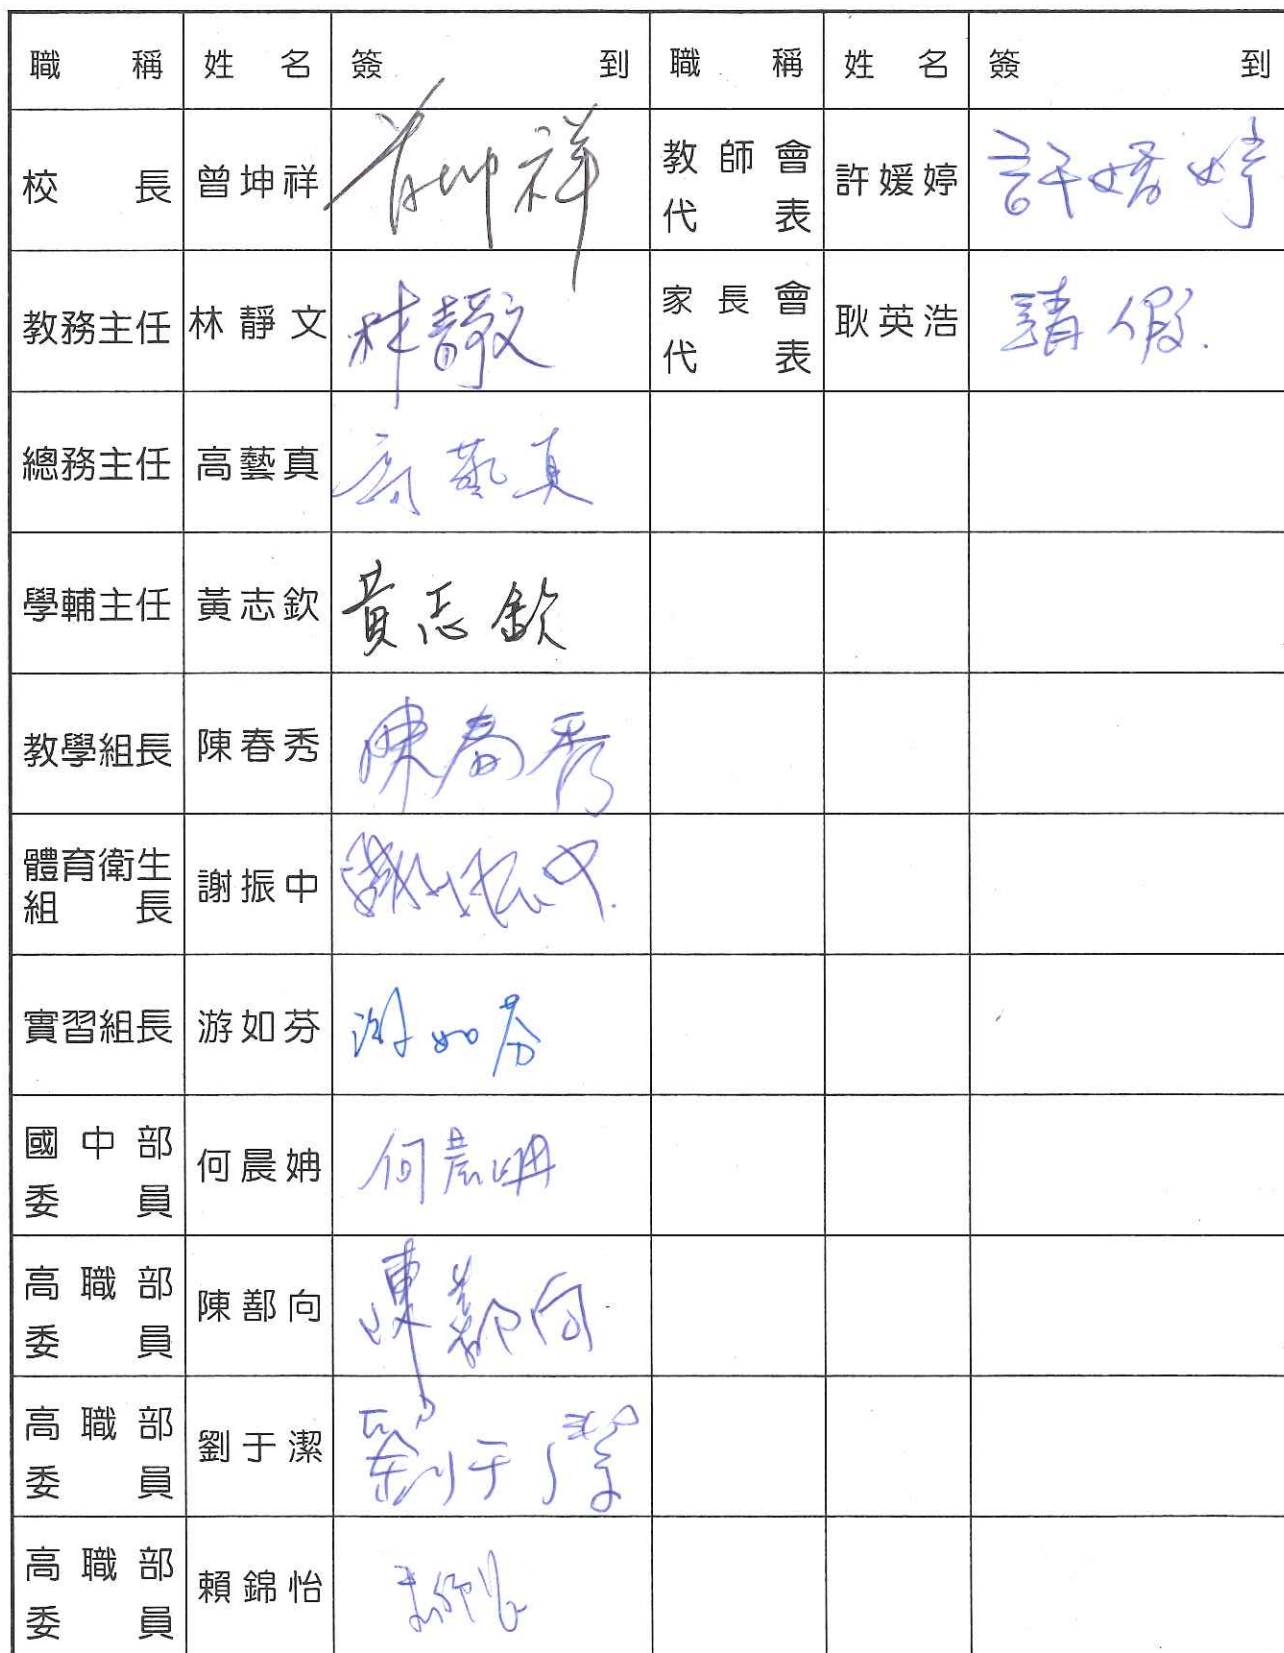 職稱 姓名 簽到 職稱 姓名 簽到
校長 曾坤祥 曾坤祥 教師會代表 許媛婷 許媛婷
教務主任 林靜文 林靜文 家長會代表 耿英浩 請假.
總務主任 高藝真 高藝真
學輔主任 黃志欽 黃志欽
教學組長 陳春秀 陳春秀
體育衛生組長 謝振中 謝振中.
實習組長 游如芬 游如芬
國中部委員 何晨姌 何晨姌
高職部委員 陳鄯向 陳鄯向
高職部委員 劉于潔 劉于潔
高職部委員 賴錦怡 賴錦怡